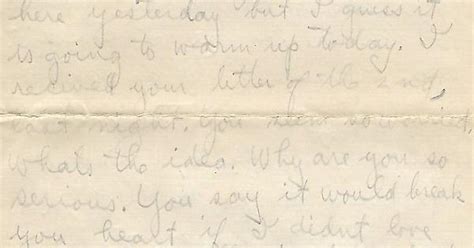 here yesterday but I guess it
is going to warm up today. I
recived your letter of the 2nd,
last night. You seem so worried
whats the idea. Why are you so
serious. You say it would break
you heart if I didnt love